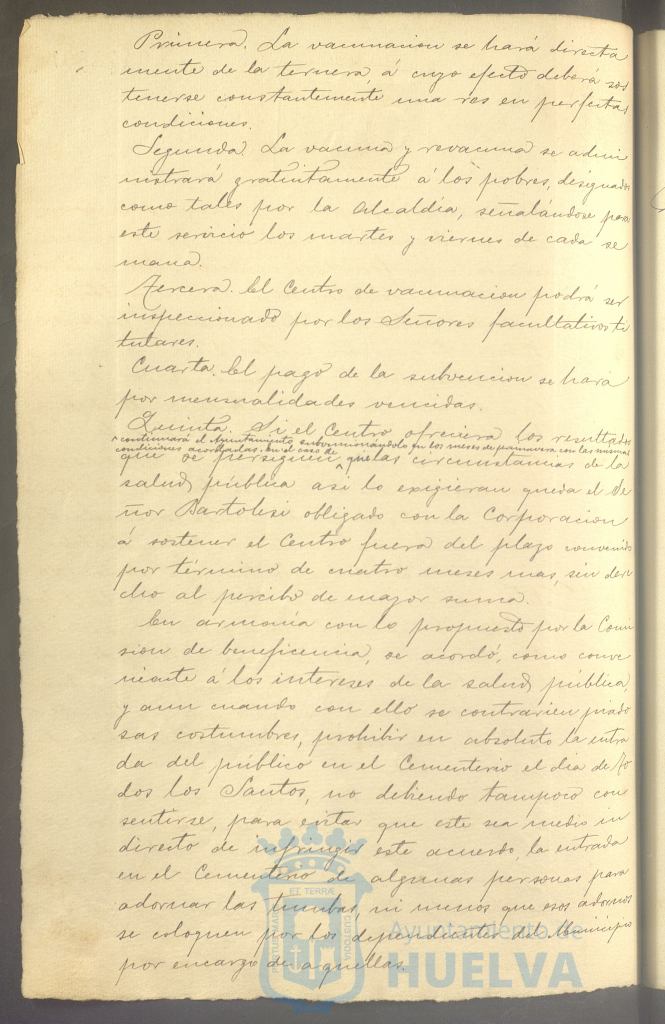 Primera. La vacunacion se hará directa
mente de la ternera, á cuyo efecto deberá sos
tenerse constantemente una res en perfectas
condiciones.
Segunda. La vacuna y revacuna se admi
nistrará gratuitamente á los pobres, designados
como tales por la Alcaldia, señalándose para
este servicio los martes y viernes de cada se
mana.
Tercera. El Centro de vacunacion podrá ser
inspeccionado por los Señores facultativos ti
tulares.
Cuarta. El pago de la subvencion se hará
por mensualidades vencidas.
Quinta. Si el Centro ofreciera los resultados
continuará el Ayuntamiento subvencionándolo en los meses de primavera con las mismas
condiciones acordadas. en el caso de
que se persiguen que las circunstancias de la
salud pública asi lo exigieran queda el Se
ñor Bartolisi obligado con la Corporacion
á sostener el Centro fuera del plazo convenido
por término de cuatro meses mas, sin dere
cho al percibo de mayor suma.
En armonía con lo propuesto por la Comi
sion de beneficencia, se acordó, como conve
niente á los intereses de la salud pública,
y aun cuando con ello se contrarien piado
sas costumbres, prohibir en absoluto la entra
da del público en el Cementerio el dia de To
dos los Santos, no debiendo tampoco con
sentirse, para evitar que este sea medio in
directo de infringir este acuerdo, la entrada
en el Cementerio de algunas personas para
adornar las tumbas, ni menos que esos adornos
se coloquen por los dependientes del Municipio
por encargo de aquellas.
Ayuntamiento de
HUELVA